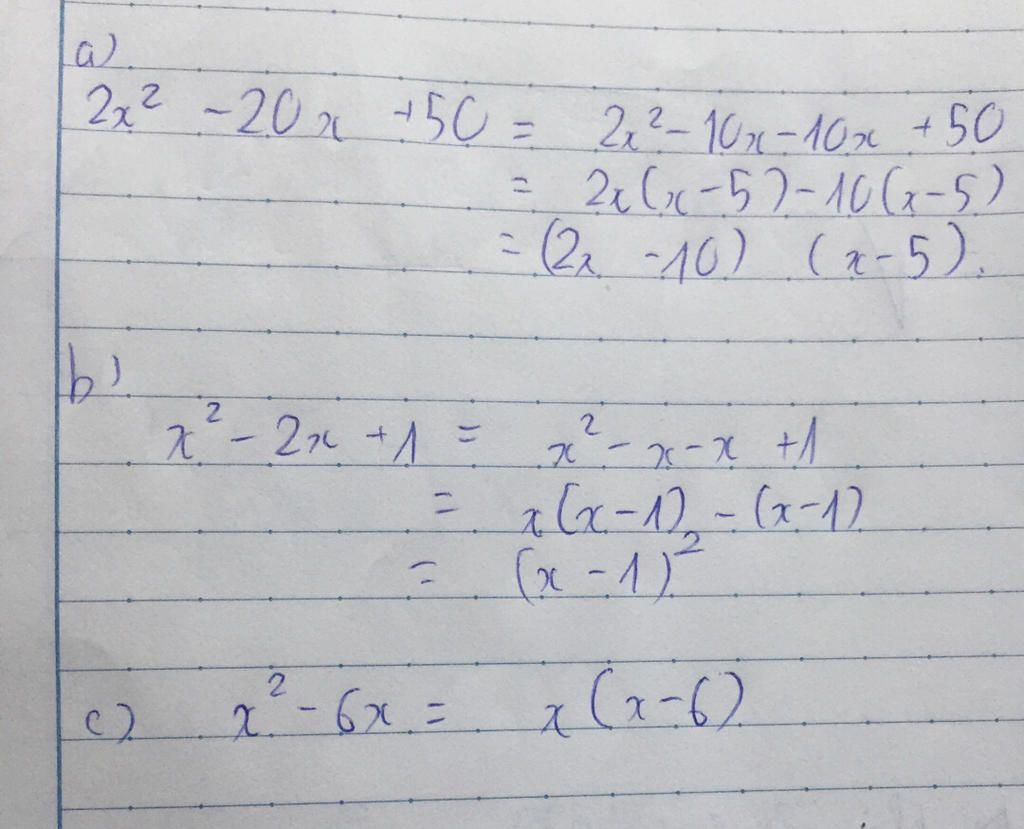 a)
2x² - 20x + 50 = 2x² - 10x - 10x + 50
= 2x(x - 5) - 10(x - 5)
= (2x - 10) (x - 5).
b)
x² - 2x + 1 = x² - x - x + 1
= x(x - 1) - (x - 1)
= (x - 1)²
c) x² - 6x = x(x - 6)